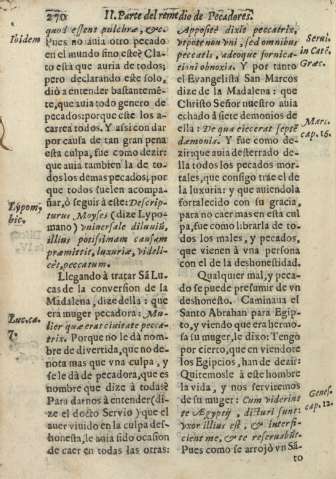 270 II. Parte del remedio de Pecadores.
Ibidem
quod essent pulchrae, &c.
Pues no auia otro pecado
en el mundo sino este? Cla-
to esta que auria de todos;
pero declarando este solo,
dió à entender bastanteme-
te, que auia todo genero de
pecados; porque este los a-
carrea todos. Y assi con dar
por causa de tan gran pena
esta culpa, fue como dezir
que auia tambien la de to-
dos los demas pecados; por
que todos suelen acompa-
ñar, ó seguir à este: Descrip-
Lypom,
bic.
turus Moyses (dize Lypo-
mano) vniuersale diluuiũ,
illius potissimam causam
præmittit, luxuria, videli-
cèt, peccatum.
Llegando à tratar Sã Lu-
cas de la conversion de la
Madalena, dize della: que
Luc. ca.
7.
era muger pecadora: Mu-
lier quæ erat ciuitate pecca-
trix. Porque no le dà nom-
bre de divertida, que no de-
nota mas que vna culpa, y
se le dà de pecadora, que es
nombre que dize à todas?
Para darnos à entender (di-
ze el docto Servio) que el
auer viuido en la culpa des-
honesta, le auia sido ocasion
de caer en todas las otras:
Appositè dixit peccatrix,
vtpote non vni, sed omnibus
peccatis, adeoque fornica-
tioni obnoxia. Y por tanto
Serui.
in Catẽ.
Græc.
el Evangelista San Marcos
dize de la Madalena: que
Christo Señor nuestro auia
echado à siete demonios de
ella: De qua eiecerat septẽ
Marc.
cap. 16.
dæmonia. Y fue como de-
zir que auia desterrado de-
lla todos los pecados mor-
tales, que consigo trae el de
la luxuria: y que auiendola
fortalecido con su gracia,
para no caer mas en esta cul
pa, fue como librarla de to-
dos los males, y pecados,
que vienen à vna persona
con el de la deshonestidad.
Qualquier mal, y peca-
do se puede presumir de vn
deshonesto. Caminaua el
Santo Abrahan para Egip-
to, y viendo que era hermo-
sa su muger, le dixo: Tengo
por cierto, que en viendote
los Egipcios, han de dezir:
Quitemosle à este hombre
la vida, y nos serviremos
de su muger: Cum viderint
Genes.
cap. 12.
te Ægyptij, dicturi sunt:
vxor illius est, & interfi-
cient me, & te reseruabũt.
Pues como se arrojò vn Sã-
to